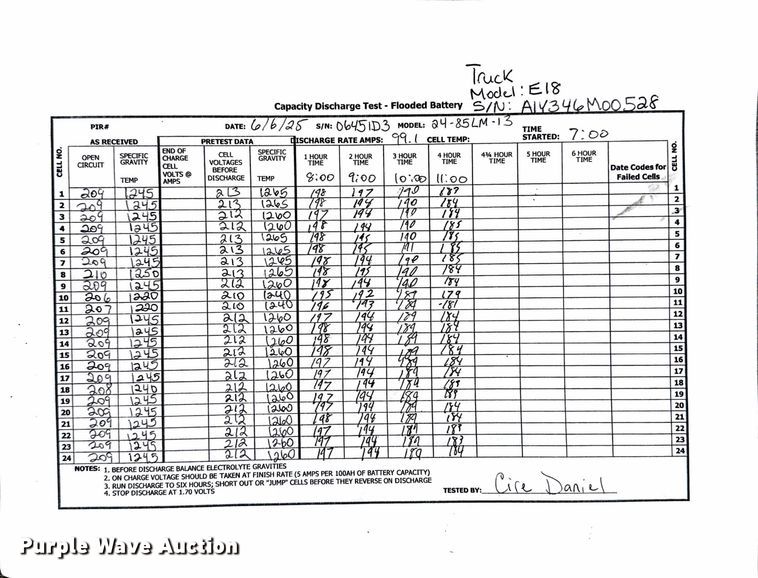 Truck
Model: E18
Capacity Discharge Test - Flooded Battery S/N: A1V346M00528
PIR# DATE: 6/6/25 S/N: 06451D3 MODEL: 24-85LM-13 TIME STARTED: 7:00
AS RECEIVED PRETEST DATA DISCHARGE RATE AMPS: 99.1 CELL TEMP:
CELL NO. OPEN CIRCUIT SPECIFIC GRAVITY TEMP END OF CHARGE CELL VOLTS @ AMPS CELL VOLTAGES BEFORE DISCHARGE SPECIFIC GRAVITY TEMP 1 HOUR TIME 8:00 2 HOUR TIME 9:00 3 HOUR TIME 10:00 4 HOUR TIME 11:00 4¾ HOUR TIME 5 HOUR TIME 6 HOUR TIME Date Codes for Failed Cells CELL NO.
1 209 1245 213 1265 198 197 190 1
2 209 1245 213 1265 198 194 190 184 2
3 209 1245 212 1260 197 194 190 184 3
4 209 1245 212 1260 198 194 190 185 4
5 209 1245 213 1265 198 195 190 185 5
6 209 1245 213 1265 198 195 185 6
7 209 1245 213 1265 198 194 190 185 7
8 210 1250 213 1265 198 195 190 184 8
9 209 1245 212 1260 198 194 190 184 9
10 206 1220 210 1240 195 192 187 179 10
11 207 1220 210 1240 196 193 181 11
12 209 1245 212 1260 197 194 189 184 12
13 209 1245 212 1260 198 194 189 184 13
14 209 1245 212 1260 198 194 189 184 14
15 209 1245 212 1260 198 194 189 184 15
16 209 1245 212 1260 197 194 189 184 16
17 209 1245 212 1260 197 194 189 184 17
18 208 1240 212 1260 197 194 189 183 18
19 209 1245 212 1260 197 194 189 19
20 209 1245 212 1260 197 194 189 184 20
21 209 1245 212 1260 198 194 189 184 21
22 209 1245 212 1260 197 194 189 183 22
23 209 1245 212 1260 197 194 183 23
24 209 1245 212 1260 197 194 189 184 24
NOTES: 1. BEFORE DISCHARGE BALANCE ELECTROLYTE GRAVITIES
2. ON CHARGE VOLTAGE SHOULD BE TAKEN AT FINISH RATE (5 AMPS PER 100AH OF BATTERY CAPACITY)
3. RUN DISCHARGE TO SIX HOURS; SHORT OUT OR "JUMP" CELLS BEFORE THEY REVERSE ON DISCHARGE
4. STOP DISCHARGE AT 1.70 VOLTS
TESTED BY: Cire Daniel
Purple Wave Auction